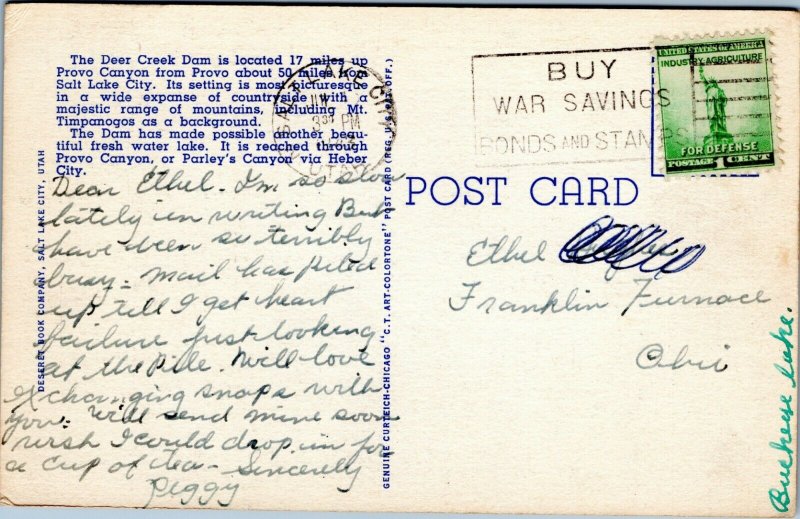 The Deer Creek Dam is located 17 miles up
Provo Canyon from Provo about 50 miles from
Salt Lake City. Its setting is most picturesque
in a wide expanse of countryside with a
majestic range of mountains, including Mt.
Timpanogos as a background.
The Dam has made possible another beau-
tiful fresh water lake. It is reached through
Provo Canyon, or Parley's Canyon via Heber
City.
SALT LAKE CITY
330 PM
UTAH
BUY
WAR SAVINGS
BONDS AND STAMPS
UNITED STATES OF AMERICA
INDUSTRY AGRICULTURE
FOR DEFENSE
POSTAGE 1 CENT
POST CARD
Dear Ethel. I'm so slow
lately in writing But
have been so terribly
busy - mail has piled
up till I get heart
failure just looking
at the pile. Will love
exchanging snaps with
you. Will send mine soon
wish I could drop in for
a cup of tea - Sincerely
Peggy
Ethel
Franklin Furnace
Ohio
DESERET BOOK COMPANY, SALT LAKE CITY, UTAH
GENUINE CURTEICH-CHICAGO "C.T. ART-COLORTONE" POST CARD (REG. U.S. PAT. OFF.)
Buckeye Lake.